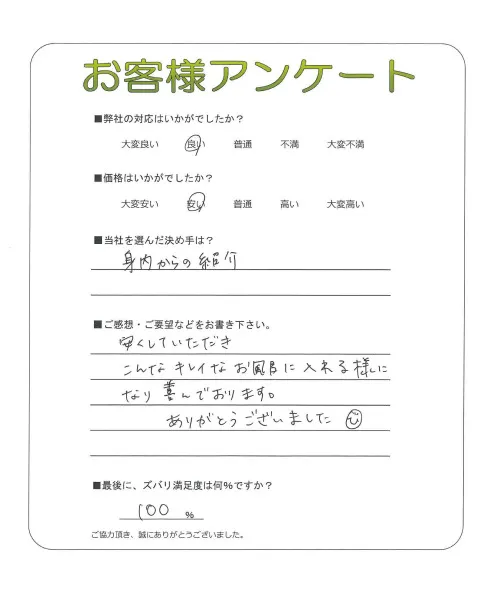 お客様アンケート
■弊社の対応はいかがでしたか？
大変良い 良い 普通 不満 大変不満
■価格はいかがでしたか？
大変安い 安い 普通 高い 大変高い
■当社を選んだ決め手は？
身内からの紹介
■ご感想・ご要望などをお書き下さい。
安くしていただき
こんなキレイなお風呂に入れる様に
なり喜んでおります。
ありがとうございました
■最後に、ズバリ満足度は何%ですか？
100 %
ご協力頂き、誠にありがとうございました。